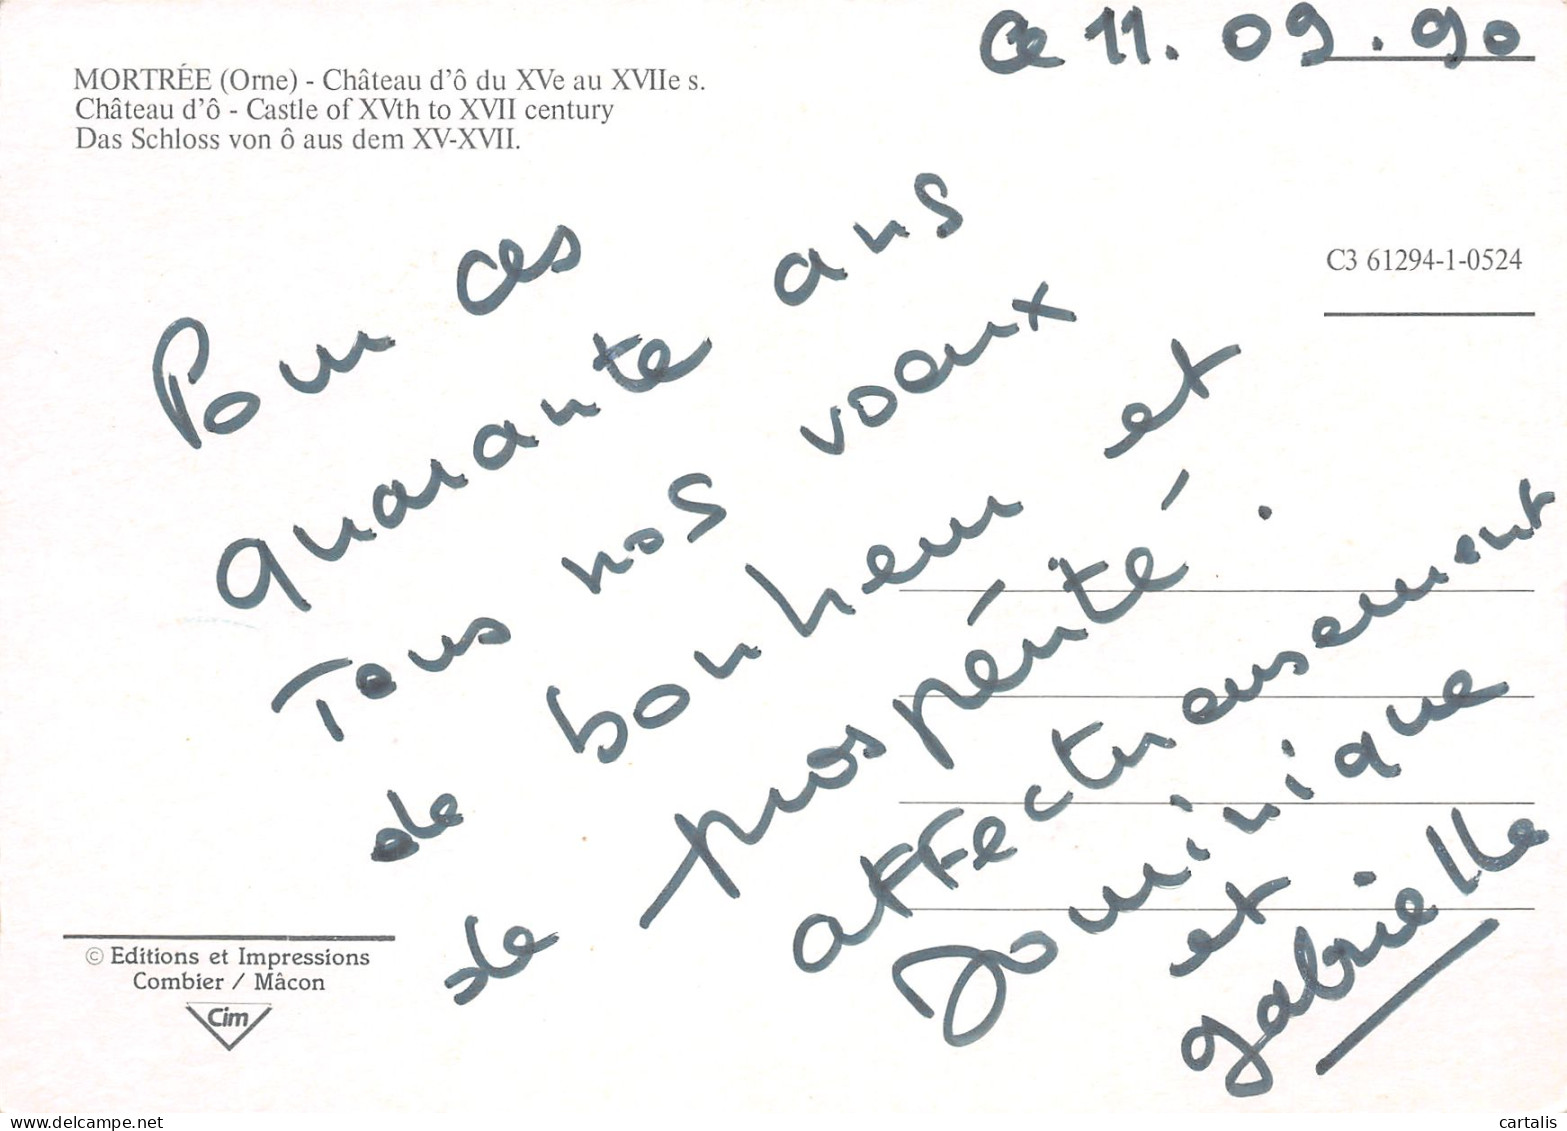 ce 11.09.90
MORTRÉE (Orne) - Château d'ô du XVe au XVIIe s.
Château d'ô - Castle of XVth to XVII century
Das Schloss von ô aus dem XV-XVII.
C3 61294-1-0524
Pour ces
quarante ans
Tous nos voeux
de bonheur et
de prospérité.
affectueusement
Dominique
et
gabrielle
© Editions et Impressions
Combier / Mâcon
Cim
cartalis